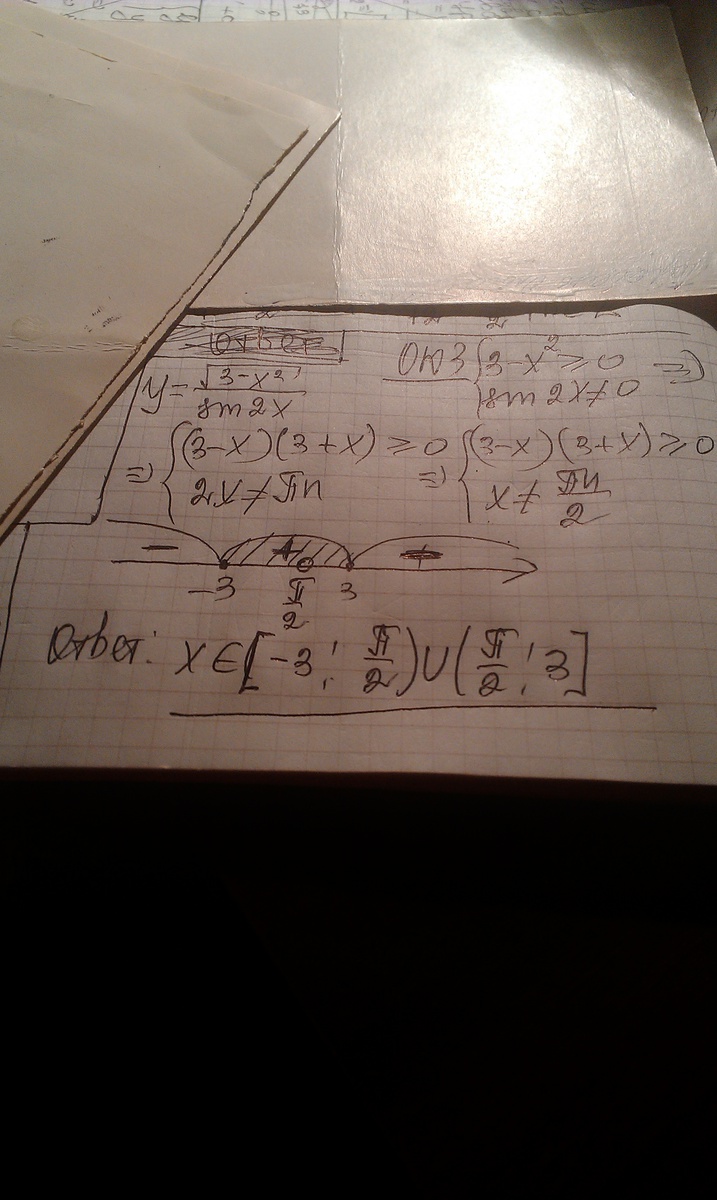 Ответ
y = √(3-x²) / sin 2x
ОДЗ { 3-x² ≥ 0 ⇒
{ sin 2x ≠ 0
⇒ { (3-x)(3+x) ≥ 0 ⇒ { (3-x)(3+x) ≥ 0
2x ≠ πn x ≠ πn/2
− + +
-3 π/2 3
Ответ: x ∈ [-3; π/2) ∪ (π/2; 3]